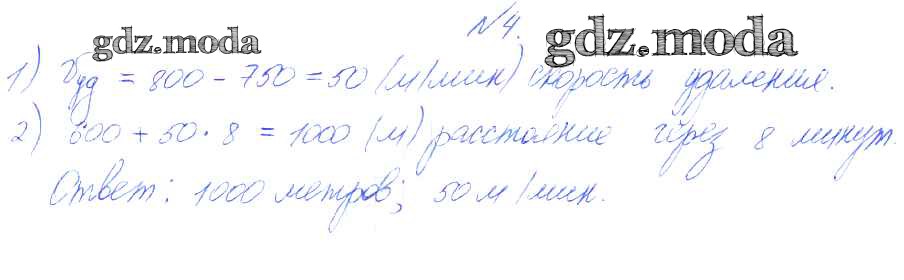 №4.
gdz.moda gdz.moda
1) Vуд = 800 - 750 = 50 (м/мин) скорость удаления.
2) 600 + 50 · 8 = 1000 (м) расстояние через 8 минут.
Ответ: 1000 метров; 50 м/мин.